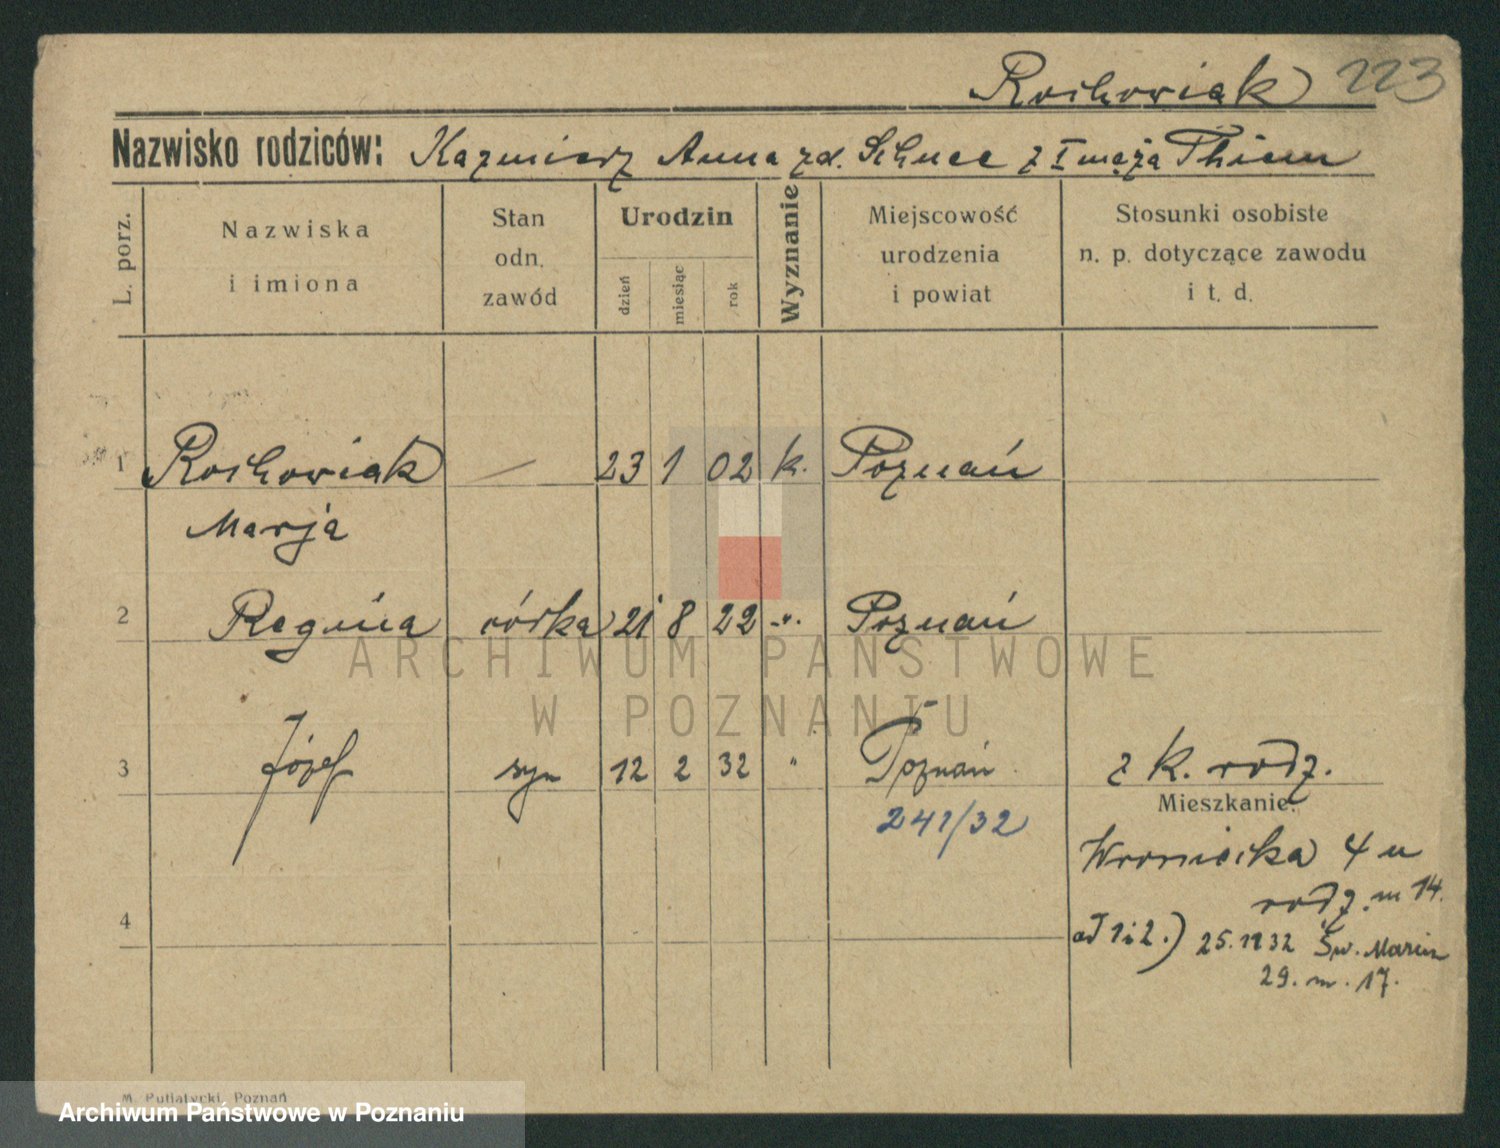 Rochowiak 223
Nazwisko rodziców: Kazmierz Anna zd. Schnee z I męża Thiem
L. porz.
Nazwiska
i imiona
Stan
odn.
zawód
Urodzin
dzień
miesiąc
rok
Wyznanie
Miejscowość
urodzenia
i powiat
Stosunki osobiste
n. p. dotyczące zawodu
i t. d.
1 Rochowiak — 23 1 02 k. Poznań
Marja
2 Regina córka 21 8 22 -"- Poznań
3 Józef syn 12 2 32 " Poznań z k. rodz.
241/32
Mieszkanie:
Wroniecka 4 u
rodz. m 14.
4
ad 1 i 2.) 25.11 32 Św. Marcin
29. m. 17.
M. Putiatycki, Poznań
ARCHIWUM PAŃSTWOWE
W POZNANIU
Archiwum Państwowe w Poznaniu